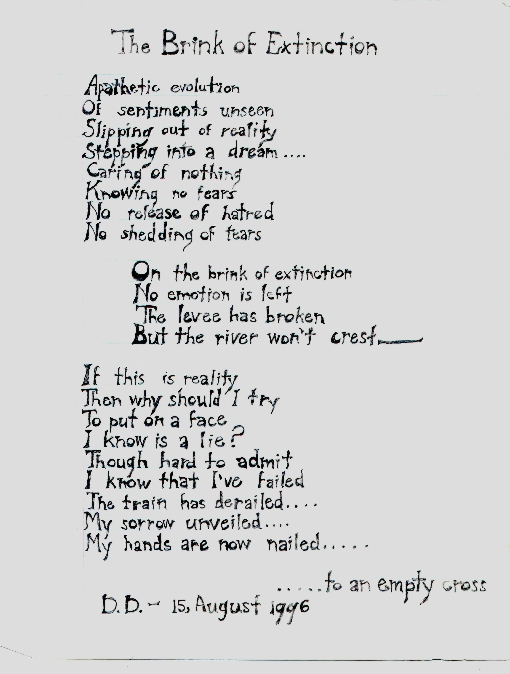 The Brink of Extinction
Apathetic evolution
Of sentiments unseen
Slipping out of reality
Stepping into a dream....
Caring of nothing
Knowing no fears
No release of hatred
No shedding of tears
On the brink of extinction
No emotion is left
The levee has broken
But the river won't crest
If this is reality
Then why should I try
To put on a face
I know is a lie?
Though hard to admit
I know that I've failed
The train has derailed....
My sorrow unveiled....
My hands are now nailed.....
.....to an empty cross
D.D. - 15, August 1996